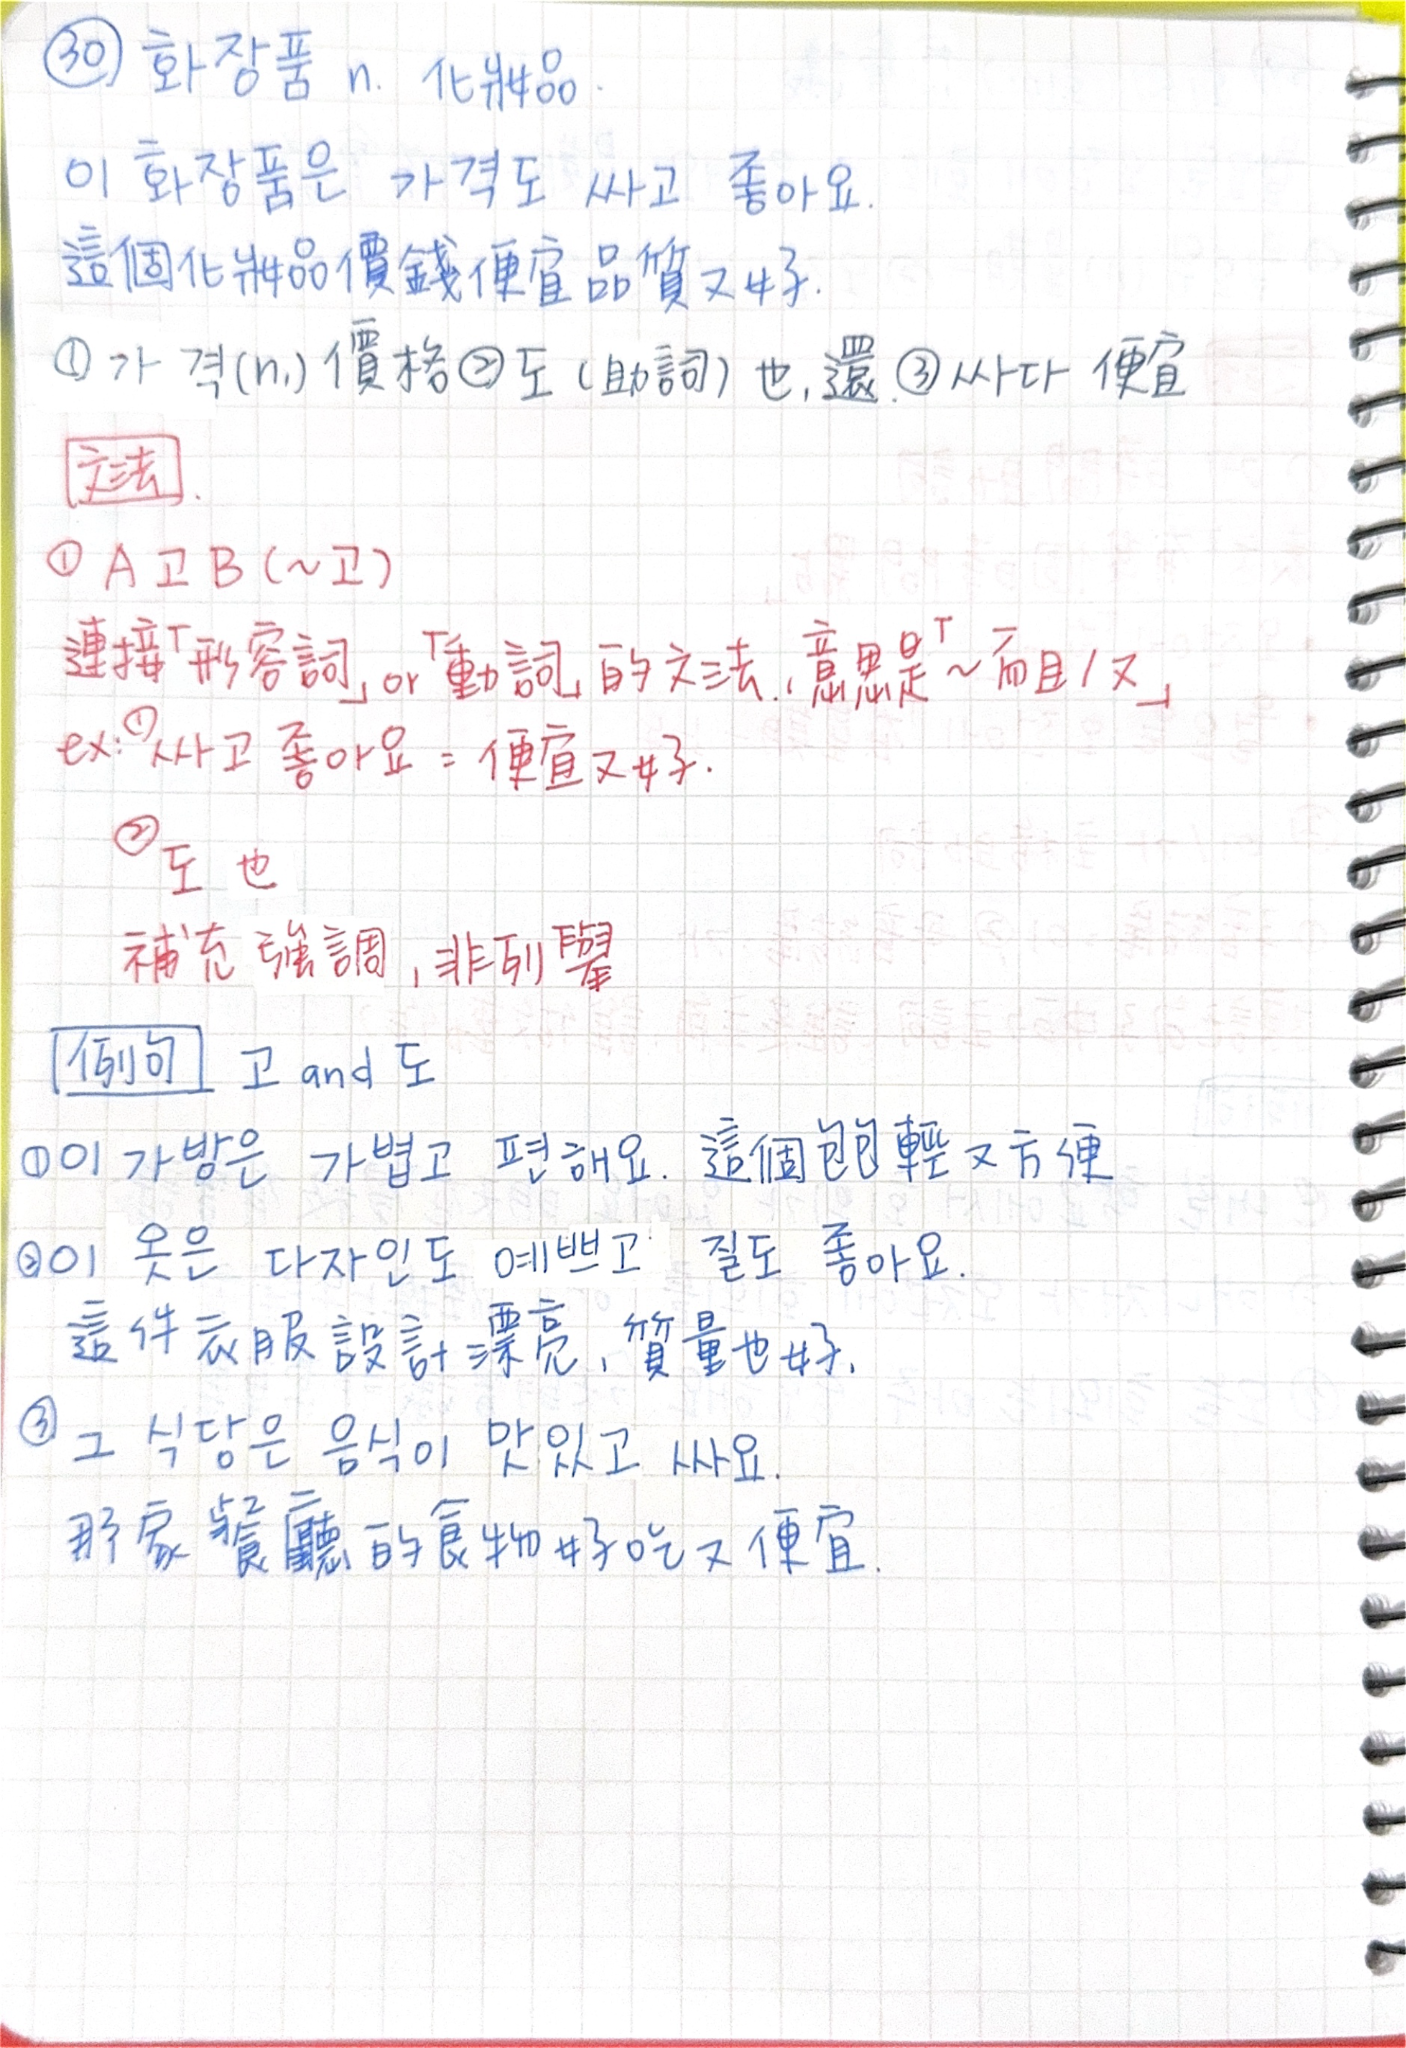 ㉚ 화장품 n. 化妝品.
이 화장품은 가격도 싸고 좋아요.
這個化妝品價錢便宜品質又好.
① 가격(n.) 價格 ② 도 (助詞) 也, 還. ③ 싸다 便宜
文法.
① A고B (~고)
連接「形容詞」or「動詞」的文法, 意思是「~而且/又」
ex: ① 싸고 좋아요 = 便宜又好.
② 도 也
補充強調, 非列舉
例句 고 and 도
① 이 가방은 가볍고 편해요. 這個包包輕又方便
② 이 옷은 다자인도 예쁘고 질도 좋아요.
這件衣服設計漂亮, 質量也好.
③ 그 식당은 음식이 맛있고 싸요.
那家餐廳的食物好吃又便宜.